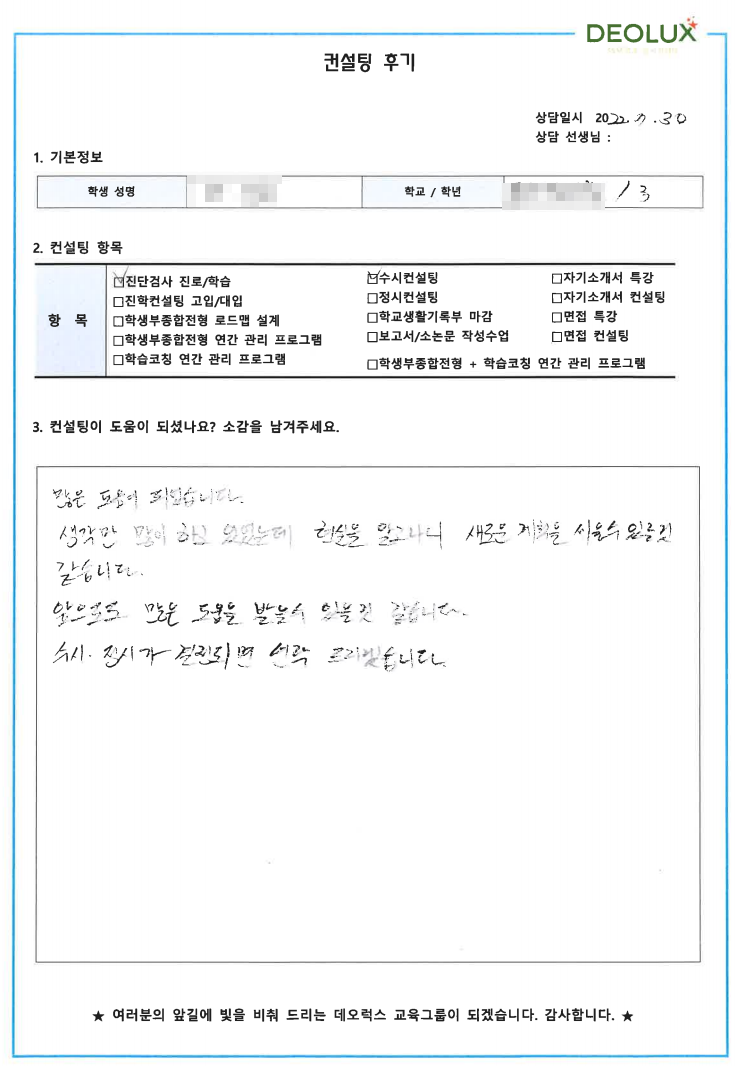 DEOLUX
컨설팅 후기
상담일시 2022. 7. 30
상담 선생님 :
1. 기본정보
학생 성명 학교 / 학년 / 3
2. 컨설팅 항목
항 목
☑진단검사 진로/학습 ☑수시컨설팅 □자기소개서 특강
□진학컨설팅 고입/대입 □정시컨설팅 □자기소개서 컨설팅
□학생부종합전형 로드맵 설계 □학교생활기록부 마감 □면접 특강
□학생부종합전형 연간 관리 프로그램 □보고서/소논문 작성수업 □면접 컨설팅
□학습코칭 연간 관리 프로그램 □학생부종합전형 + 학습코칭 연간 관리 프로그램
3. 컨설팅이 도움이 되셨나요? 소감을 남겨주세요.
많은 도움이 되었습니다.
생각만 많이 하고 있었는데 현실을 알고나니 새로운 계획을 세울수 있을것
같습니다.
앞으로도 많은 도움을 받을수 있을것 같습니다.
수시. 정시가 결정되면 연락 드리겠습니다.
★ 여러분의 앞길에 빛을 비춰 드리는 데오럭스 교육그룹이 되겠습니다. 감사합니다. ★